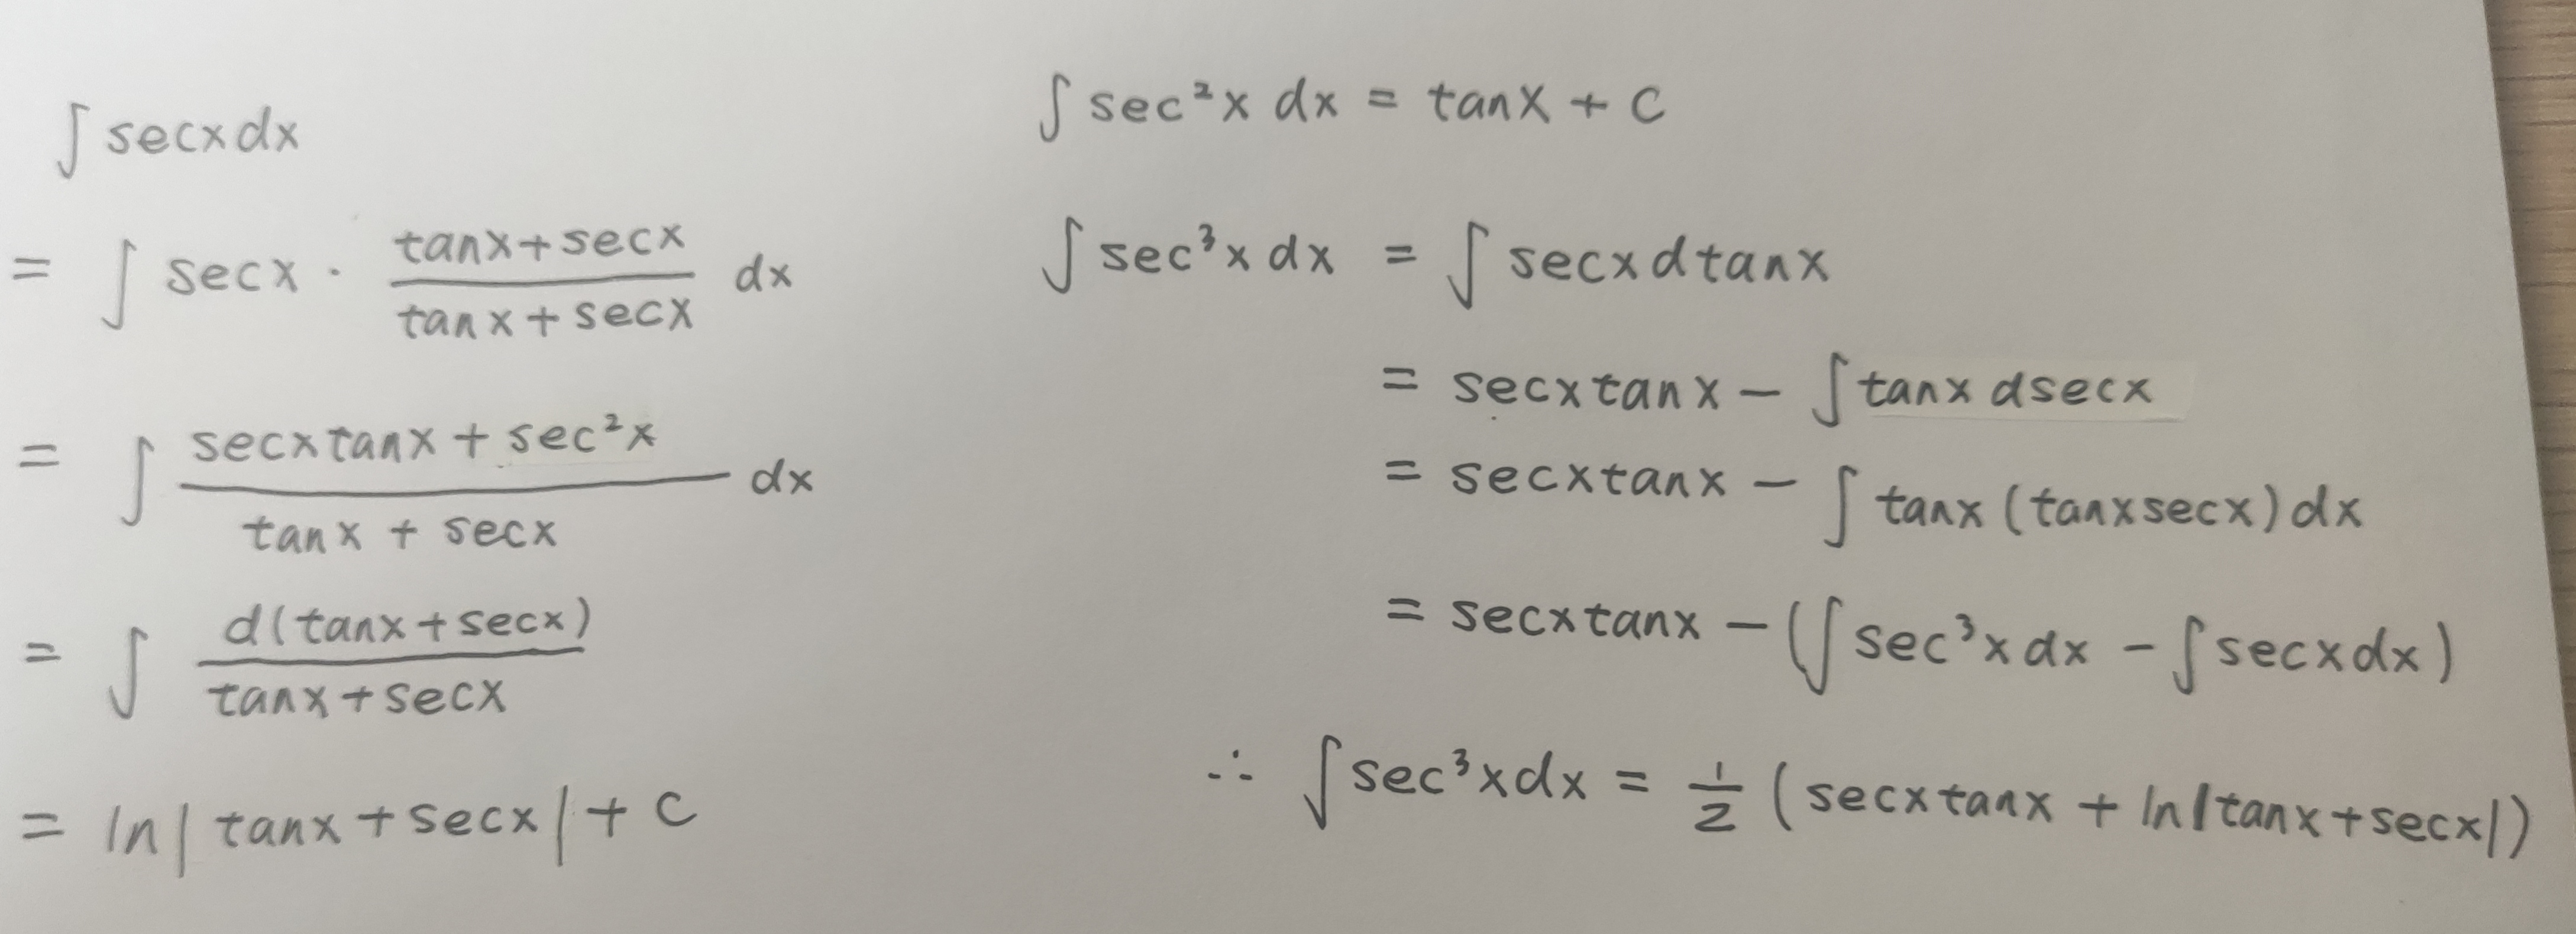 ∫ secx dx
= ∫ secx · (tanx+secx)/(tanx+secx) dx
= ∫ (secxtanx + sec²x)/(tanx + secx) dx
= ∫ d(tanx+secx)/(tanx+secx)
= ln| tanx + secx | + C
∫ sec²x dx = tanx + C
∫ sec³x dx = ∫ secx d tanx
= secxtanx − ∫ tanx dsecx
= secxtanx − ∫ tanx (tanxsecx) dx
= secxtanx − (∫ sec³x dx − ∫ secx dx)
∴ ∫ sec³x dx = 1/2 (secxtanx + ln|tanx+secx|)